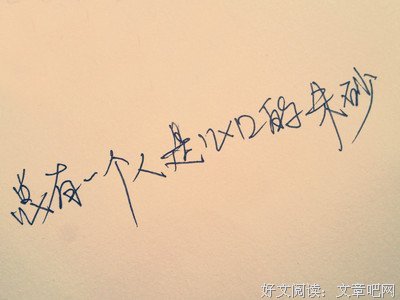 总有一个人是心口的朱砂
好文阅读：文章吧网